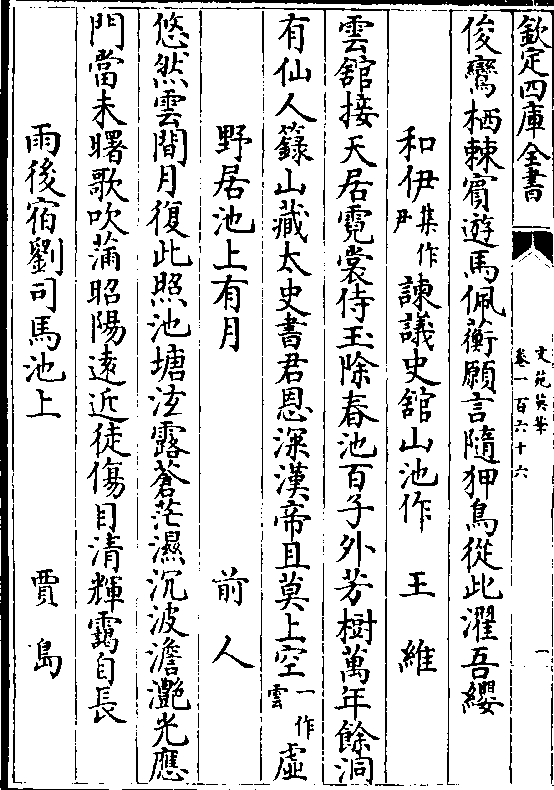 欽定四庫全書
文苑英華
卷一百六十六
一
俊鸞栖棘賓遊馬佩蘅願言隨狎鳥從此濯吾纓
和伊集作尹諫議史舘山池作 王維
雲舘接天居霓裳侍玉除春池百子外芳樹萬年餘洞
有仙人籙山藏太史書君恩深漢帝且莫上空一作雲虛
野居池上有月 前人
悠然雲間月復此照池塘泫露蒼茫濕沉波澹灔光應
門當未曙歌吹滿昭陽遠近徒傷目清輝靄自長
雨後宿劉司馬池上 賈島